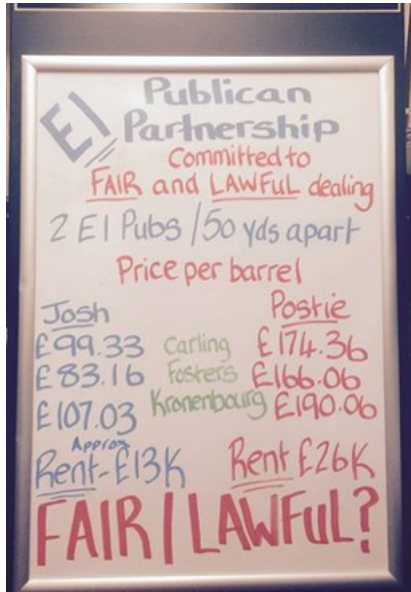 EI Publican
Partnership
Committed to
FAIR and LAWFUL dealing
2 EI Pubs / 50 yds apart
Price per barrel
Josh Postie
£99.33 Carling £174.36
£83.16 Fosters £166.06
£107.03 Kronenbourg £190.06
Approx
Rent-£13K Rent £26K
FAIR / LAWFUL?